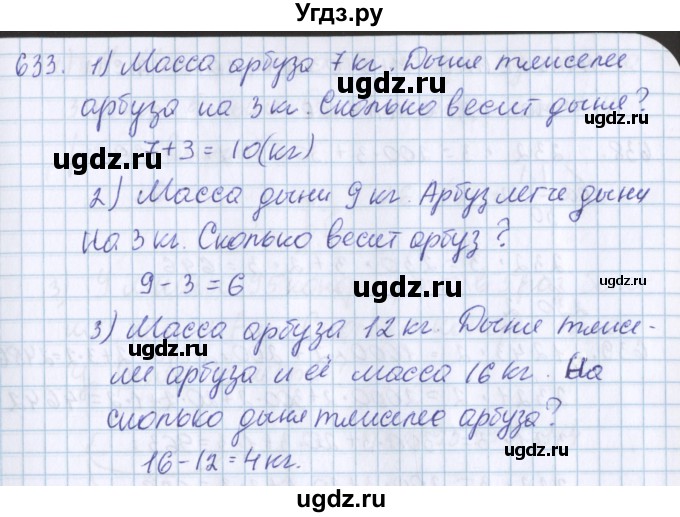 Угдз.ру
633. 1) Масса арбуза 7 кг. Дыня тяжелее
арбуза на 3 кг. Сколько весит дыня?
ugdz.ru
ugdz.ru
7+3=10(кг)
ugdz.ru
2) Масса дыни 9 кг. Арбуз легче дыни
ugdz.ru
на 3 кг. Сколько весит арбуз?
9-3=6
ugdz.ru
3) Масса арбуза 12 кг. Дыня тяже-
ugdz.ru
ugdz.ru
лее арбуза и её масса 16 кг. На
сколько дыня тяжелее арбуза?
ugdz.ru
ugdz.ru
16-12=4 кг.
ugdz.ru